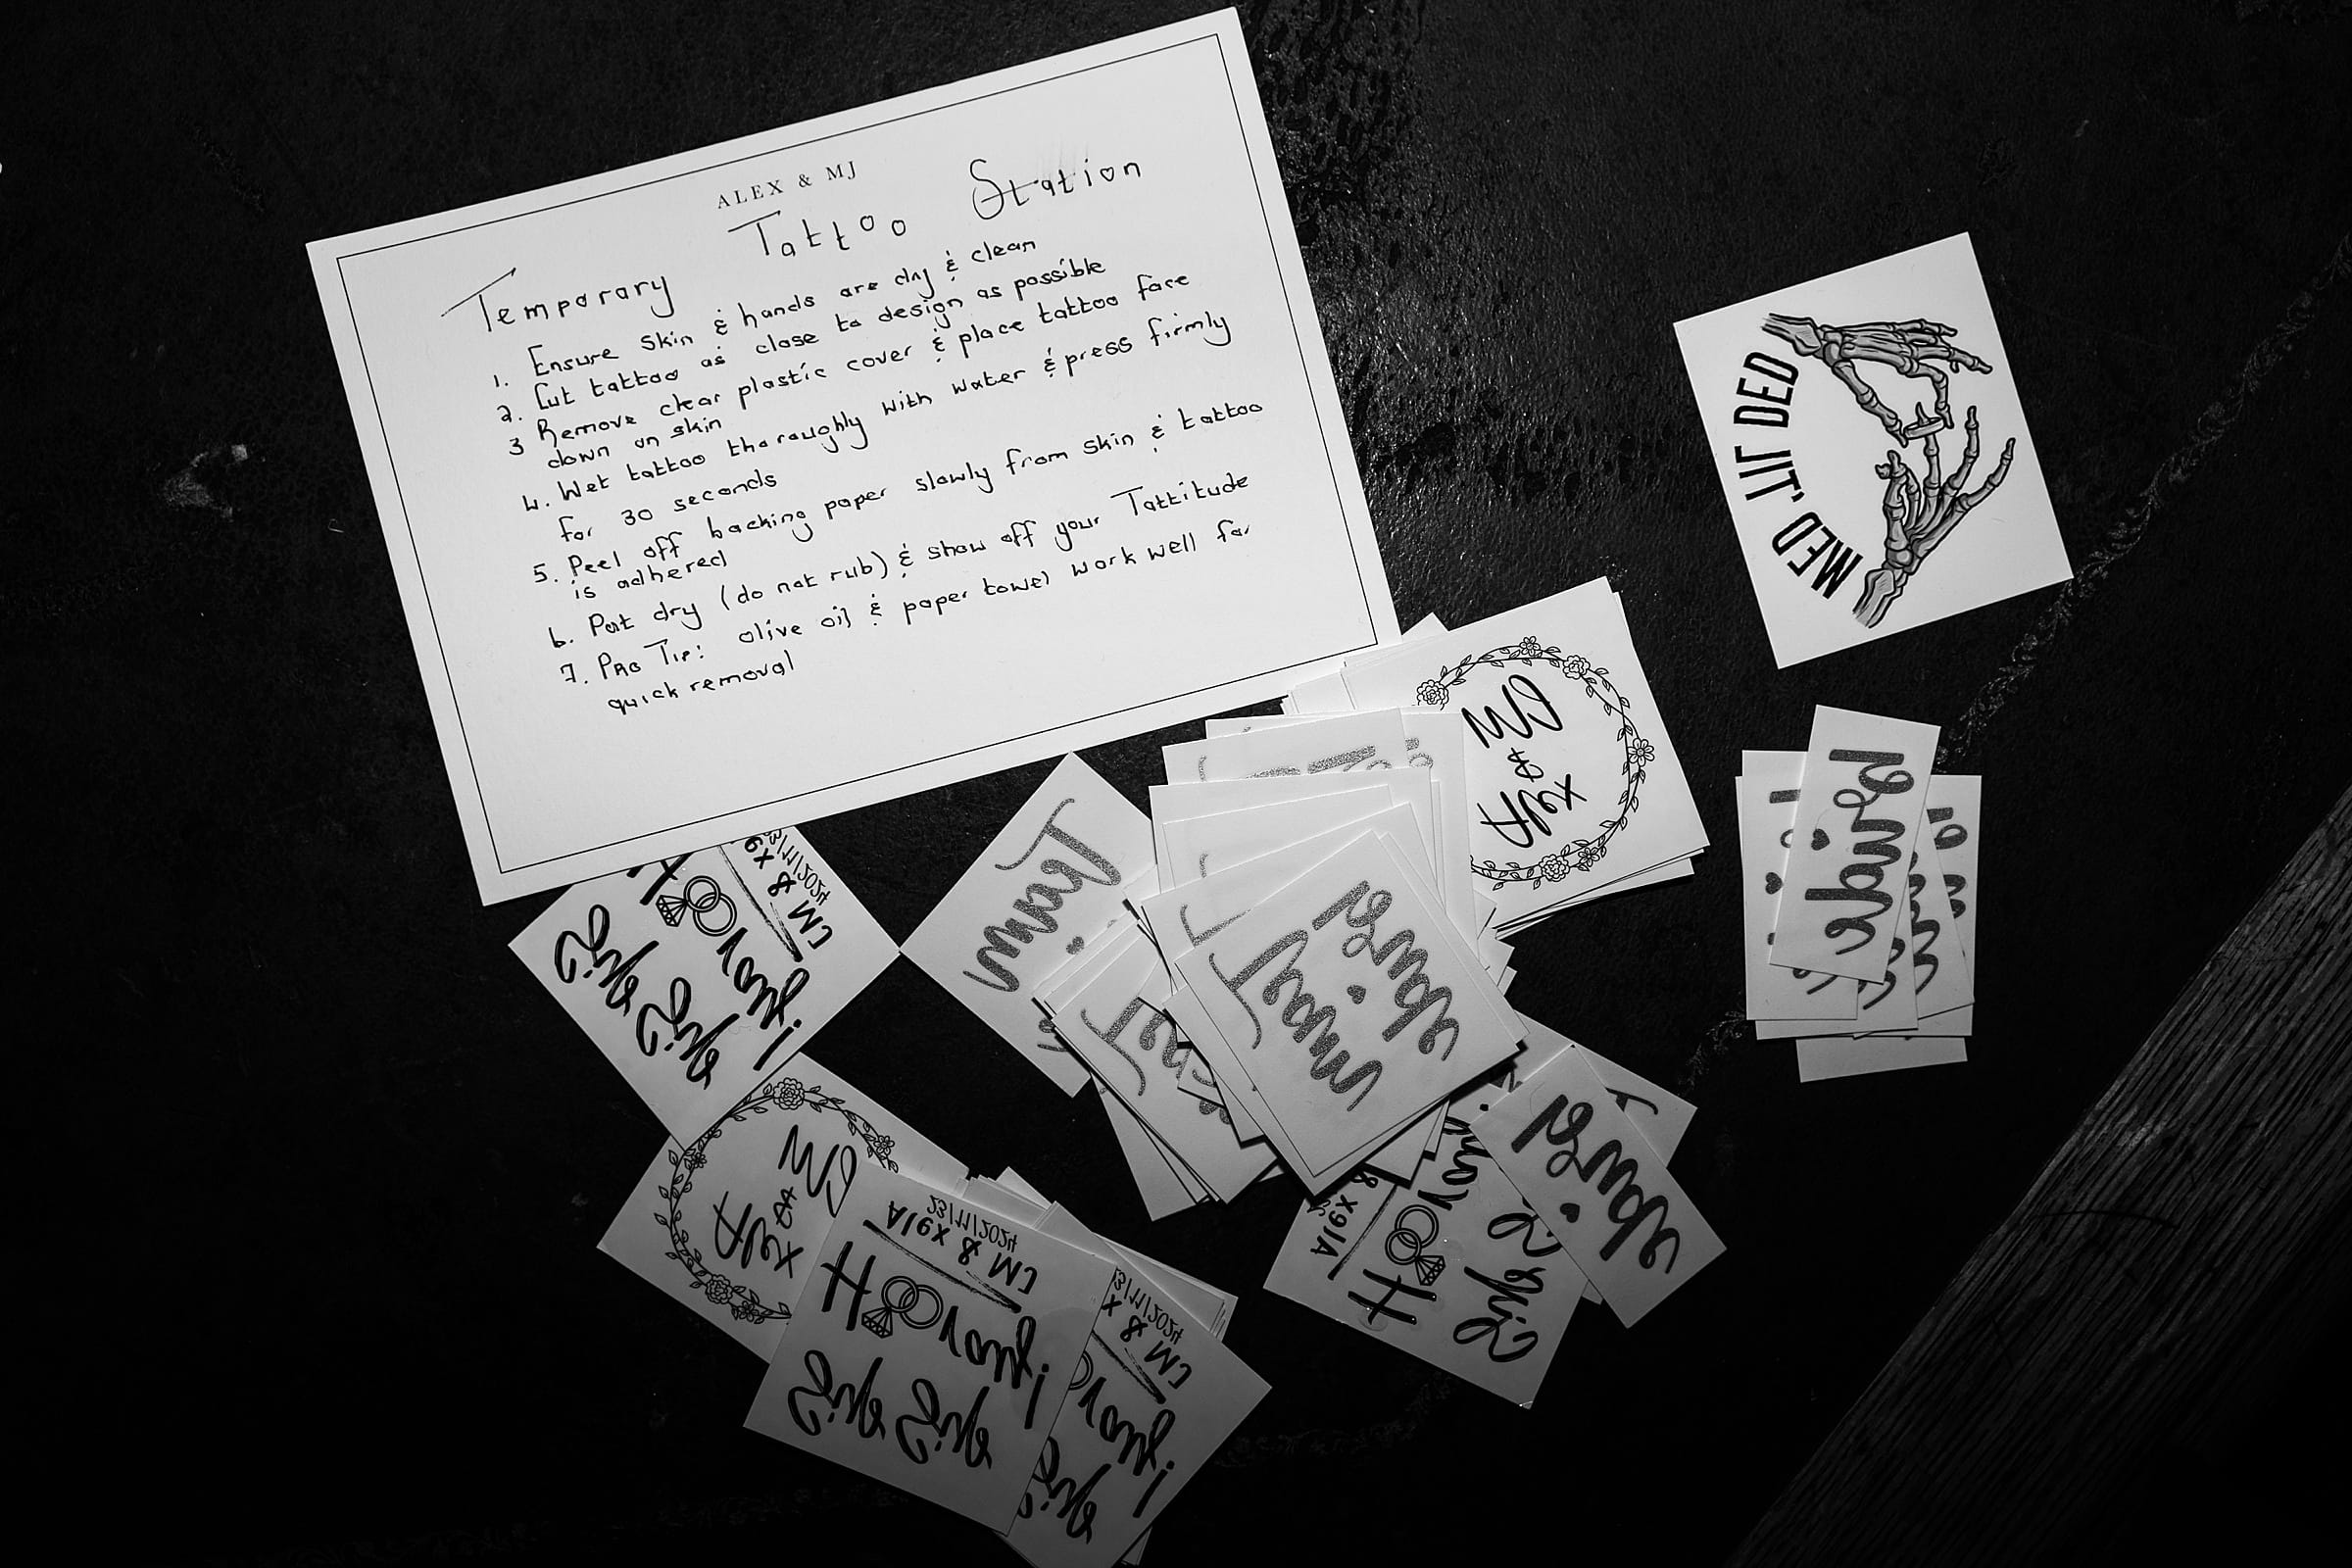 ALEX & MJ
Temporary Tattoo Station
1. Ensure skin & hands are dry & clean
2. Cut tattoo as close to design as possible
3 Remove clear plastic cover & place tattoo face
down on skin
4. Wet tattoo thoroughly with water & press firmly
for 30 seconds
5. Peel off backing paper slowly from skin & tattoo
is adhered
6. Pat dry (do not rub) & show off your Tattitude
7. PRO TIP: olive oil & paper towel work well for
quick removal
WED, LIT DED
Alex
&
MJ
Bride
Team
Bride
Team
Bride
Alex
&
MJ
Alex & MJ
23/11/2024
Alex & MJ
23/11/2024